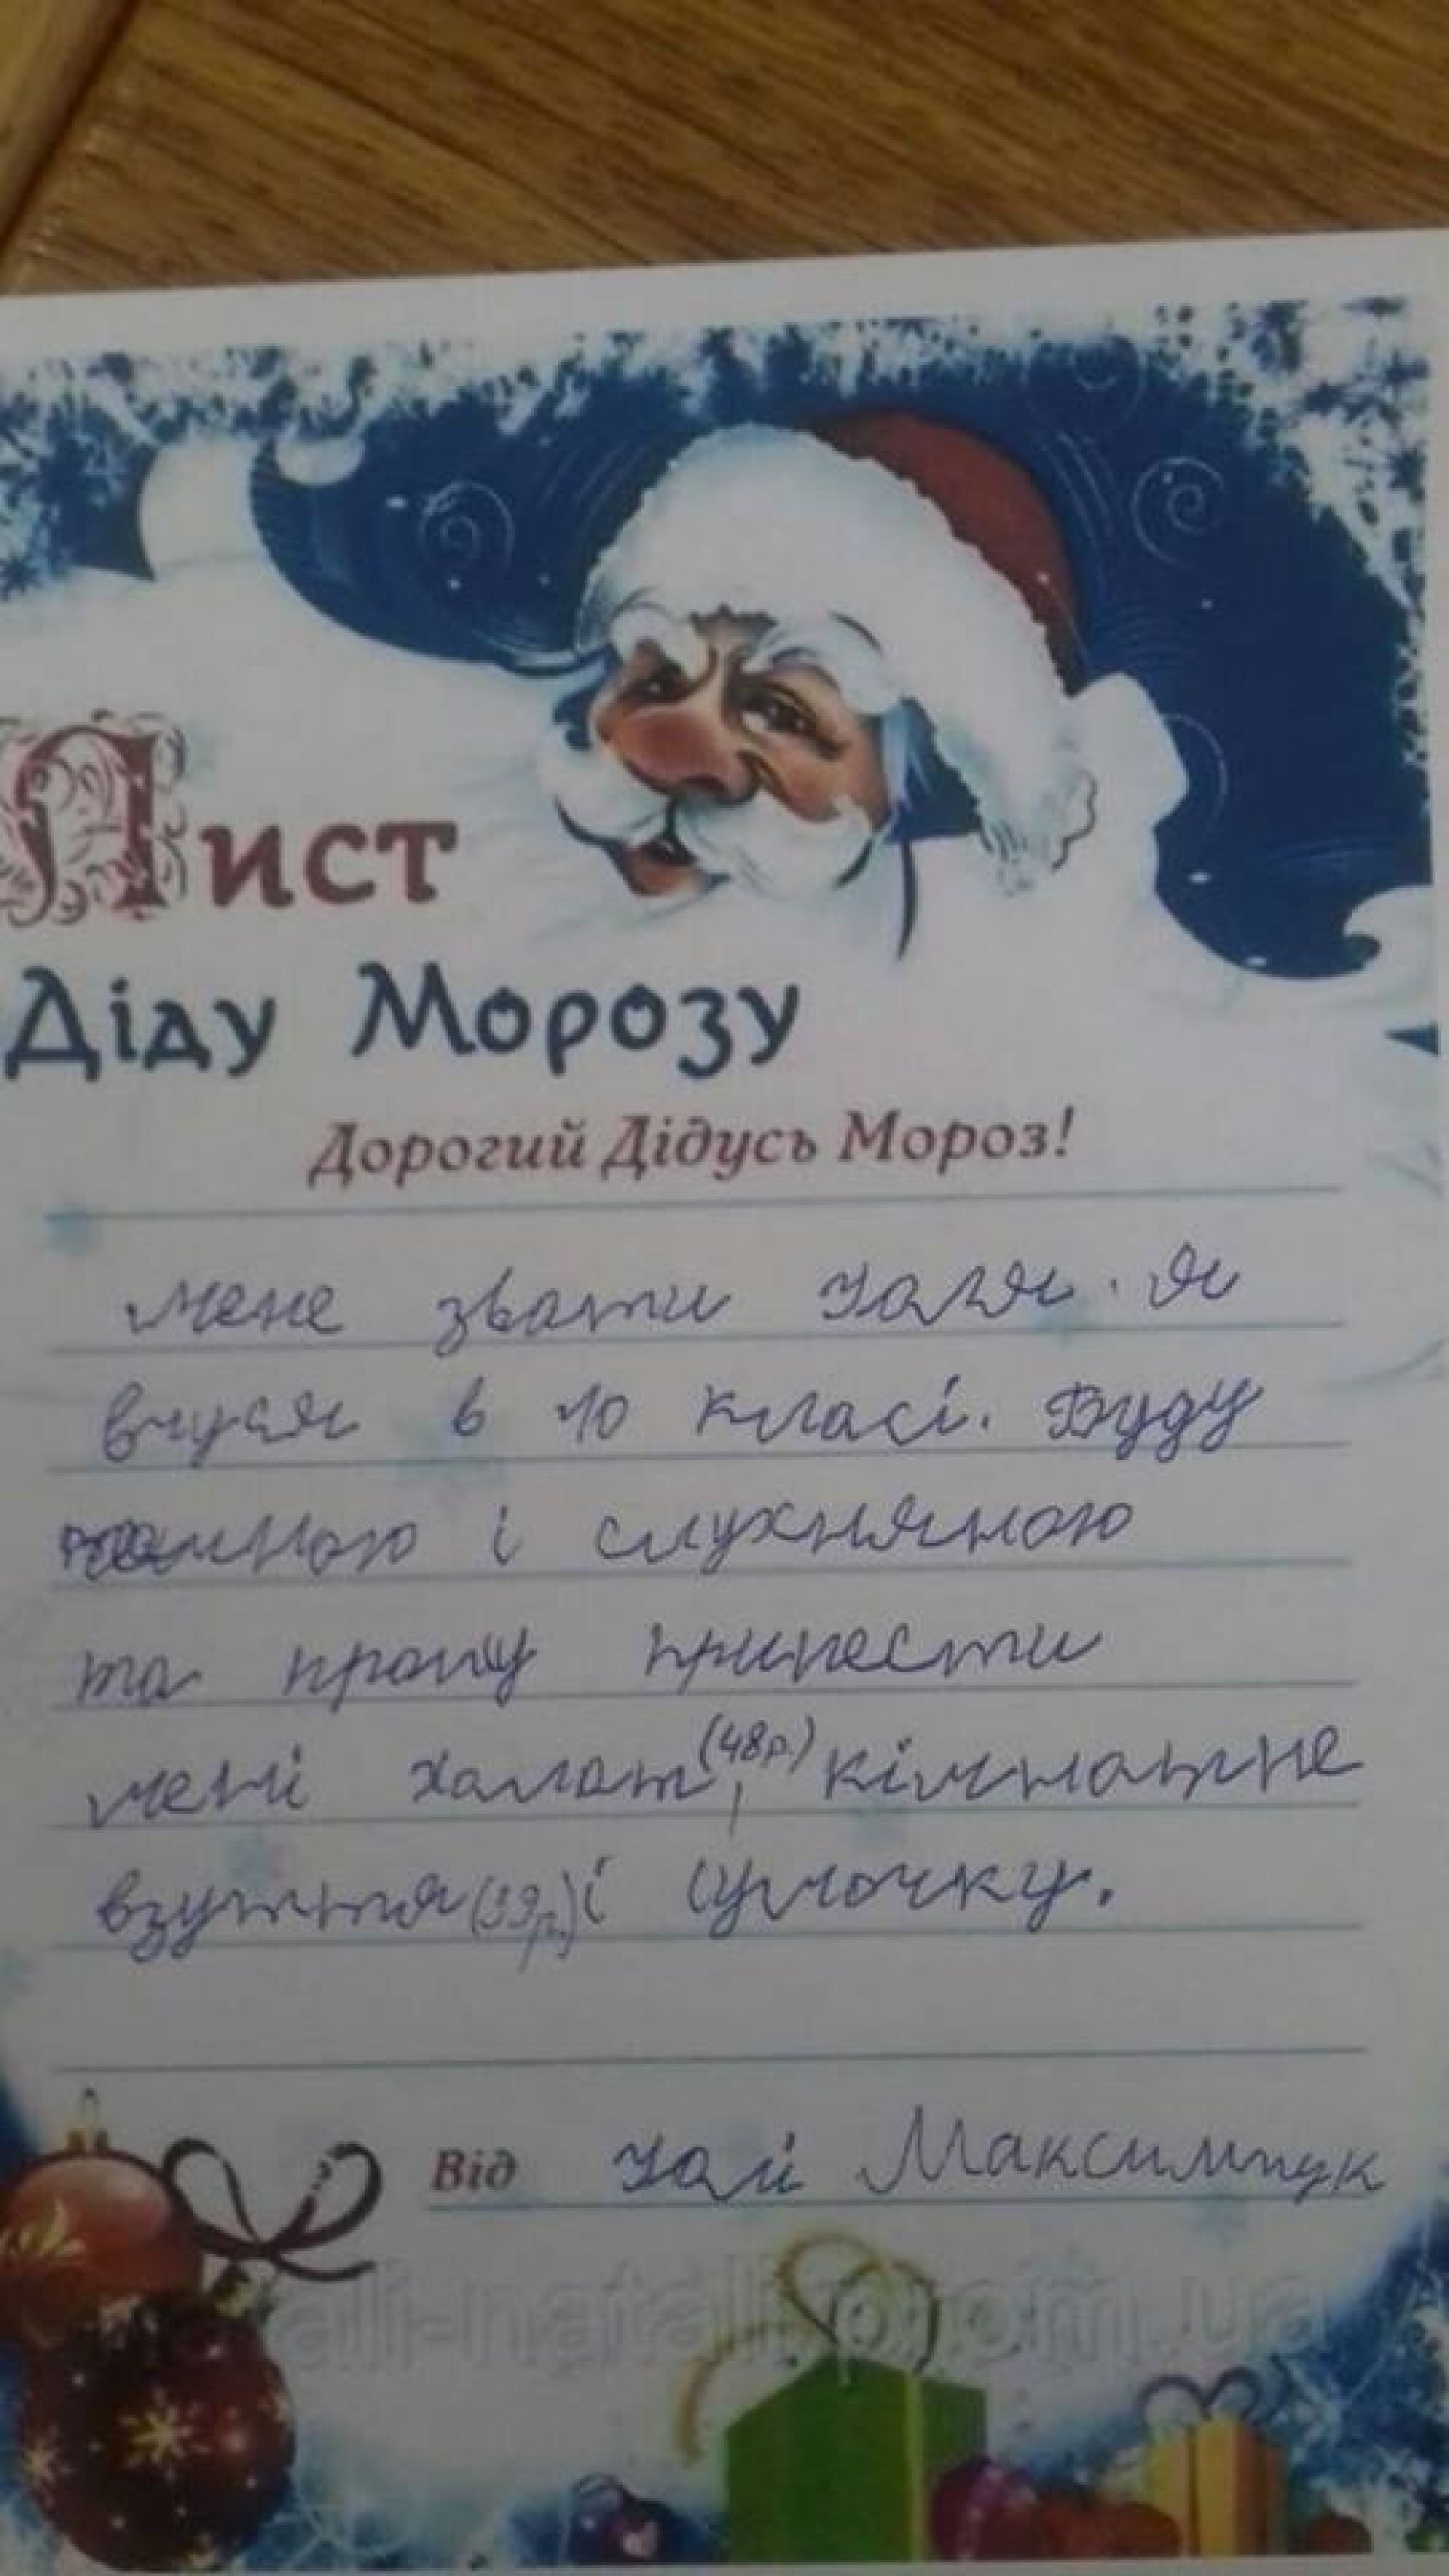 Лист
Діду Морозу
Дорогий Дідусь Мороз!
Мене звати Галя. Я
вчуся в 10 класі. Буду
чемною і слухняною
та прошу принести
мені халат (48р.), кімнатне
взуття (39р.) і сумочку.
Від Галі Максимчук
ali-natali.prom.ua